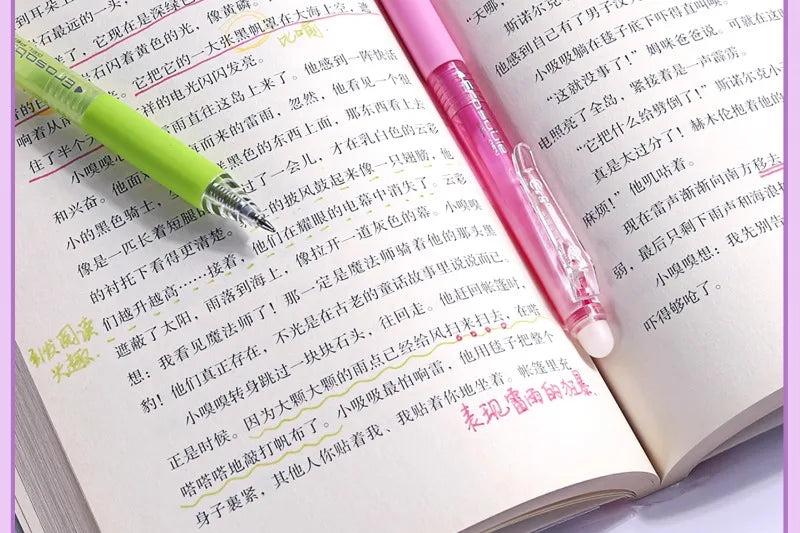 到耳朵上
石最远的一头，
它现在是深绿色
像黄磷
石闪着黄色的光，
比喻
它把它的一大张黑帆罩在大海上空，
响着从
祥的电光闪闪发亮。
住了半个
雨直往这岛上来了。他感到一阵快活
小嗅嗅心
而来的雷雨，忽然，他看见一个很
和兴奋。他面
黑色的东西上面，那东西看上去
小的黑色骑士，
过了一会儿，才在乳白色的云彩
像是一匹长着短腿的
的披风鼓起来像一只翅膀，他
的衬托下看得更清楚。
们越升越高……接着，他们在耀眼的电幕中消失了。云彩
遮蔽了太阳，雨落到海上，像拉开一道灰色的幕。小嗅嗅
想：我看见魔法师了！那一定是魔法师骑着他的那头黑
豹！他们真正存在，不光是在古老的童话故事里说说而已。
小嗅嗅转身跳过一块块石头，往回走。他赶回帐篷时，
正是时候。因为大颗大颗的雨点已经给风扫来扫去，在嗒
嗒嗒嗒地敲打帆布了。小吸吸最怕响雷，他用毯子把整个
身子裹紧，其他人你贴着我、我贴着你地坐着。帐篷里充
阅读
兴趣
表现雷雨的狂暴
erasable
erasable
“天哪，
斯诺尔克
他感到自己有了男子汉
小吸吸躺在毯子底下吓得直叫唤。
“这就没事了！”姆咪爸爸说。可就在这
电照亮了全岛，紧接着是一声霹雳。
“它把什么给劈倒了！”斯诺尔克小
真是太过分了！赫木伦抱着他的
麻烦！”他叽咕着。
现在雷声渐渐向南方移去
弱，最后只剩下雨声和海浪
小嗅嗅想：我先别告
吓得够呛了。